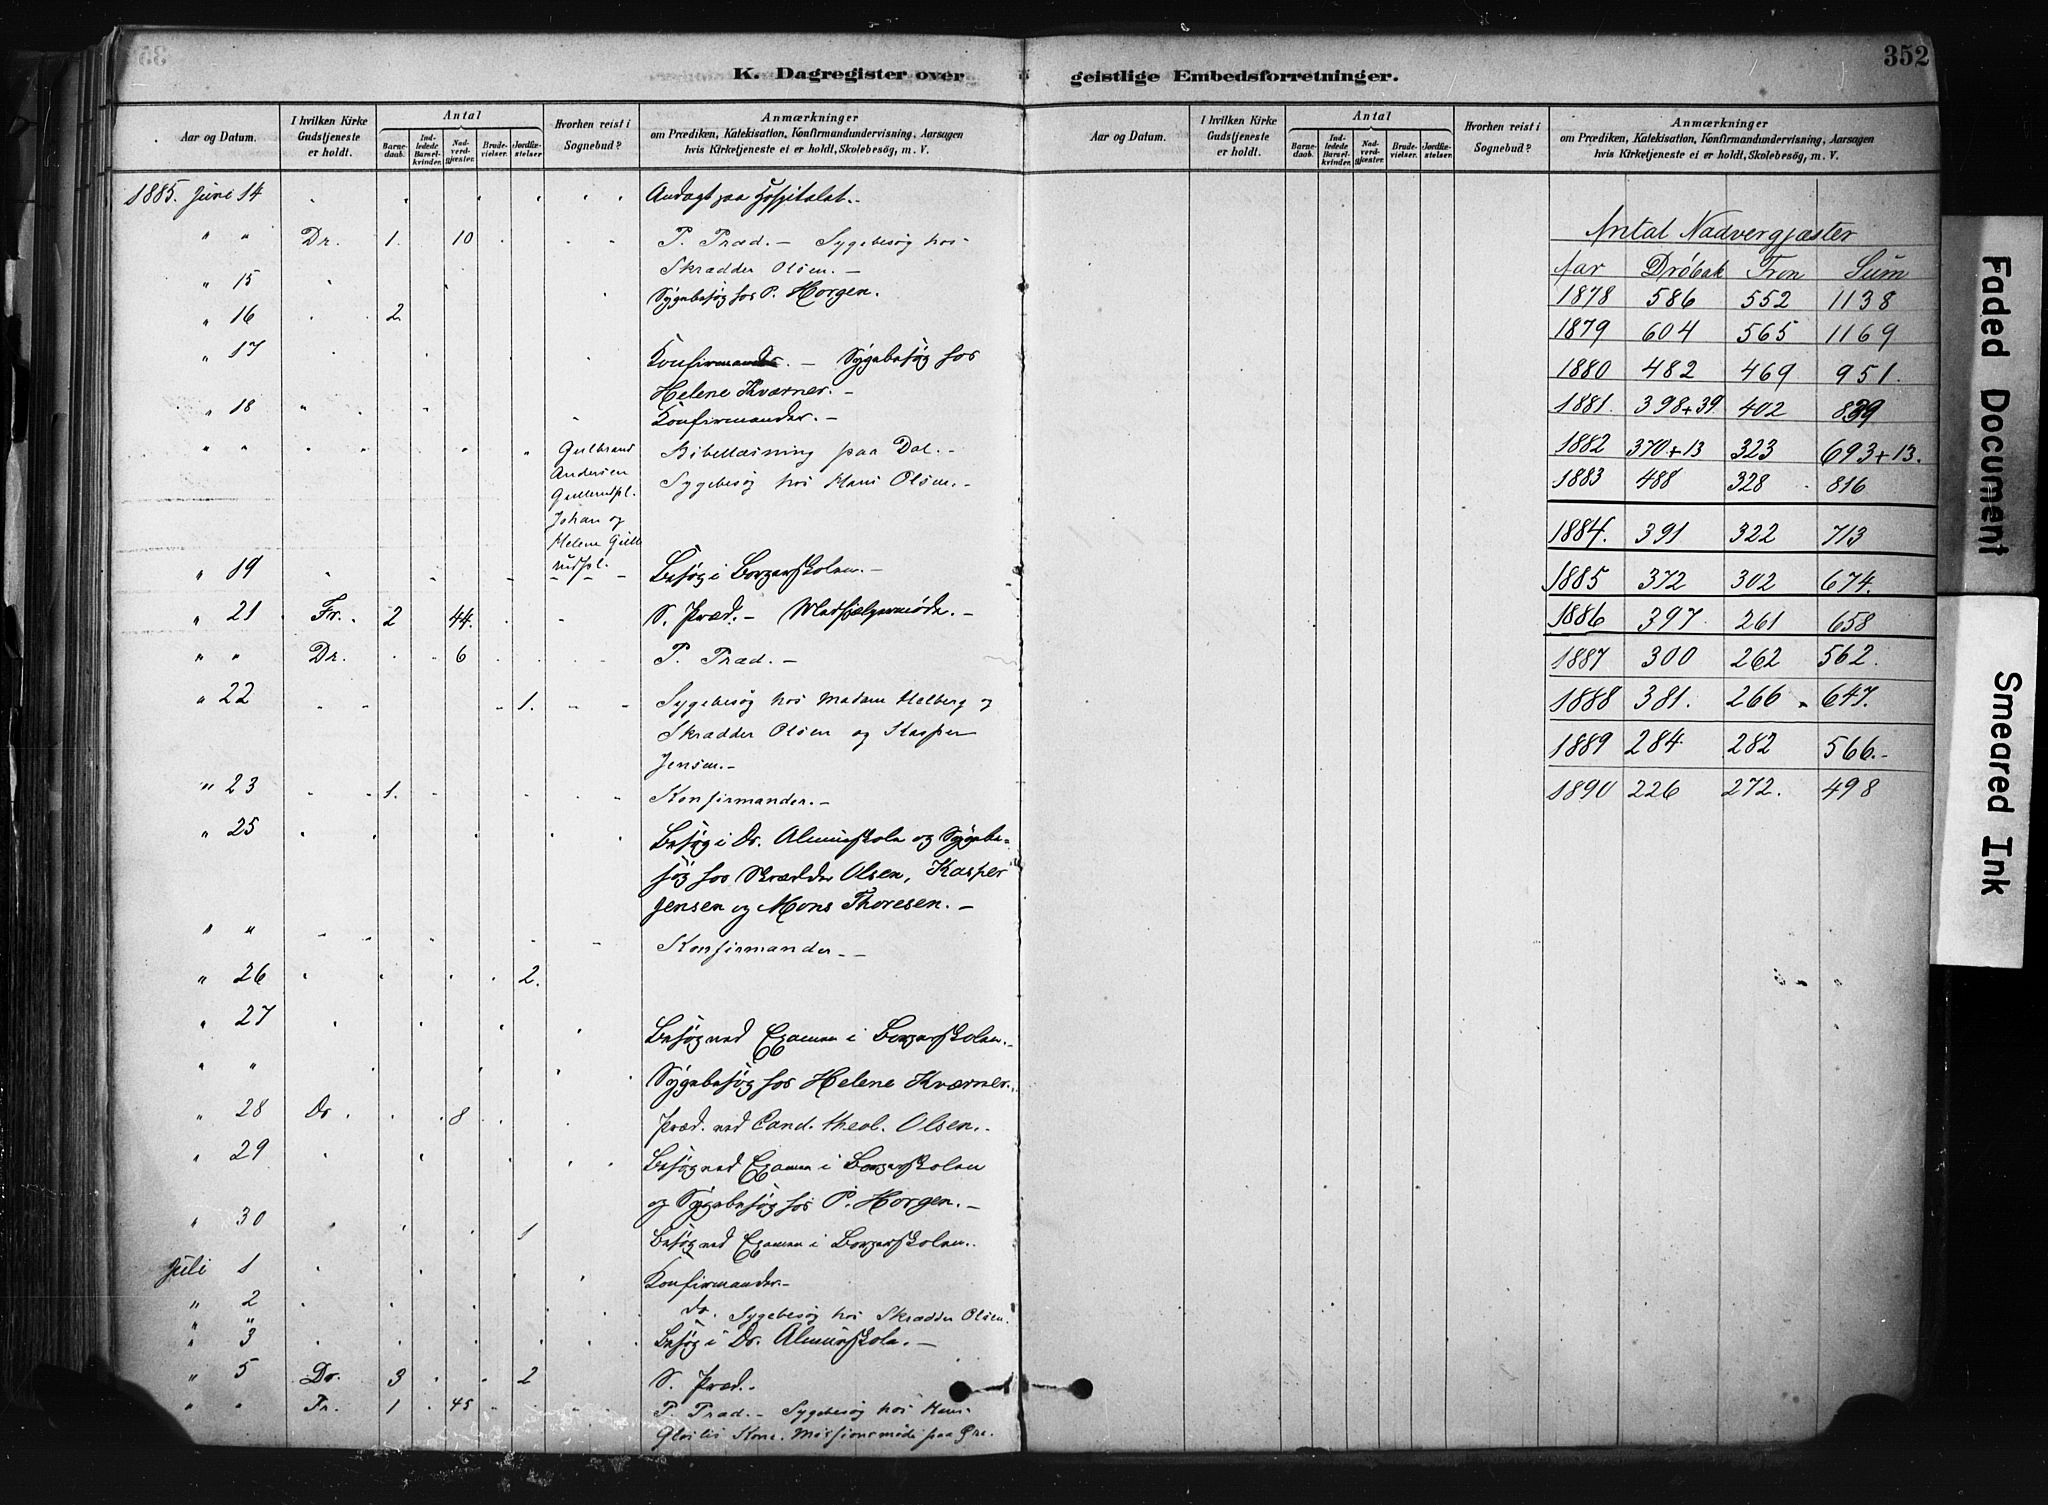 352
K. Dagregister over geistlige Embedsforretninger.
Aar og Datum.
I hvilken Kirke Gudstjeneste er holdt.
Antal
Barnedaab.
Indledede Barselkvinder.
Nadverdgjæster.
Brudevielser.
Jordfæstelser.
Hvorhen reist i Sognebud?
Anmærkninger
om Prædiken, Katekisation, Konfirmandundervisning, Aarsagen
hvis Kirketjeneste ei er holdt, Skolebesög, m. V.
1885. Juni 14 Andagt paa Hospitalet.
" " Dr. 1. 10 P. Præd. - Sygebesøg hos
Skrædder Olsen. -
" 15 Sygebesøg hos P. Horgen.
" 16 2
" 17 Konfirmander. - Sygebesøg hos
Helene Kværner. -
" 18 Konfirmander. -
" " Gulbrand Bibellæsning paa Dal. -
Andersen Sygebesøg hos Hans Olsen. -
Gullerudpl.
Johan og
Helene Gulle
rudpl.
" 19 Besøg i Borgerskolen. -
" 21 Fr. 2 44. S. Præd. -
" " Dr. 6 P. Præd. -
" 22 1. Sygebesøg hos Madam Helberg og
Skrædder Olsen og Kasper
Jensen. -
" 23 1. Konfirmander. -
" 25 Besøg i Dr. Almueskole og Sygebe-
søg hos Skrædder Olsen, Kasper
Jensen og Mons Thoresen. -
" " Konfirmander. -
" 26 2.
" 27 Besøg ved Examen i Borgerskolen. -
" " Sygebesøg hos Helene Kværner.
" 28 Dr. 8 Præd. ved Cand. theol. Olsen.
" 29 Besøg ved Examen i Borgerskolen
og Sygebesøg hos P. Horgen. -
" 30 1 Besøg ved Examen i Borgerskolen.
Juli 1 Konfirmander. -
" 2 do. Sygebesøg hos Skrædder Olsen.
" 3 Besøg i Dr. Almueskole. -
" 5 Dr. 3 2 S. Præd. -
" " Fr. 1 45 P. Præd. - Sygebesøg hos Hans
Kone. Missionsmøde paa
Aar og Datum.
I hvilken Kirke Gudstjeneste er holdt.
Antal
Barnedaab.
Indledede Barselkvinder.
Nadverdgjæster.
Brudevielser.
Jordfæstelser.
Hvorhen reist i Sognebud?
Anmærkninger
om Prædiken, Katekisation, Konfirmandundervisning, Aarsagen
hvis Kirketjeneste ei er holdt, Skolebesög, m. V.
Antal Nadvergjæster
Aar Drøbak Fron Sum
1878 586 552 1138
1879 604 565 1169
1880 482 469 951.
1881. 398+39 402 839
1882 370+13 323 693+13.
1883 488 328 816
1884. 391 322 713
1885 372 302 674.
1886 397 261 658
1887 300 262 562.
1888 381. 266 647.
1889 284 282 566.-
1890 226 272. 498
Faded Document
Smeared Ink